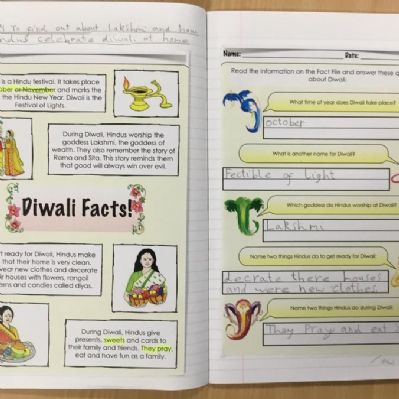 to find out about Lakshmi and how
celebrate diwali at home
is a Hindu festival. It takes place
ober or November and marks the
the Hindu New Year. Diwali is the
Festival of Lights.
During Diwali, Hindus worship the
goddess Lakshmi, the goddess of
wealth. They also remember the story of
Rama and Sita. This story reminds them
that good will always win over evil.
Diwali Facts!
t ready for Diwali, Hindus make
that their home is very clean.
wear new clothes and decorate
ir houses with flowers, rangoli
rns and candles called diyas.
During Diwali, Hindus give
presents, sweets and cards to
their family and friends. They pray,
eat and have fun as a family.
Name:
Date:
Read the information on the Fact File and answer these q
about Diwali:
What time of year does Diwali take place?
october
What is another name for Diwali?
Fectible of light
Which goddess do Hindus worship at Diwali?
Lakshmi
Name two things Hindus do to get ready for Diwali:
decrate there houses
and were new clothes
Name two things Hindus do during Diwali:
They Pray and eat